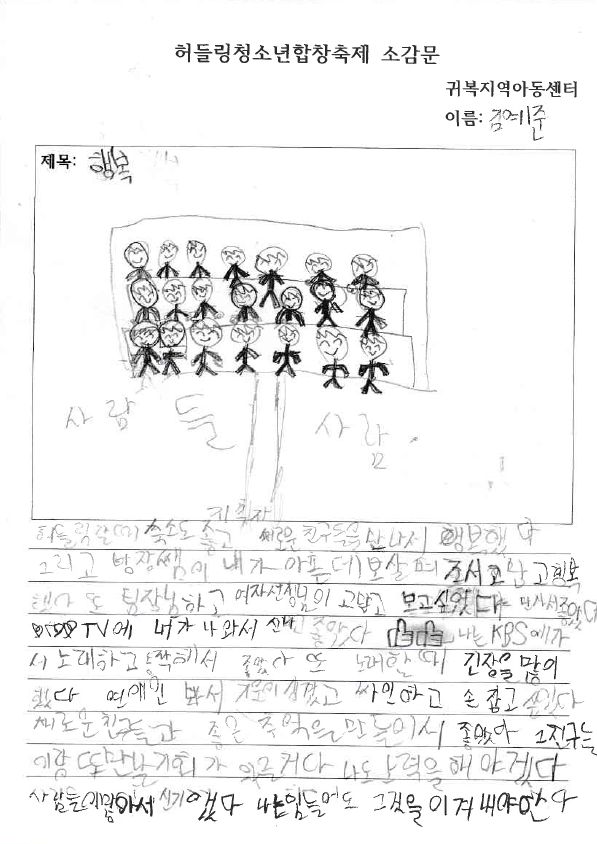 허들링청소년합창축제 소감문
귀복지역아동센터
이름: 김예준
제목: 행복
사람 들 사람
허들링갈때 숙소도 좋고 새로운 친구들을 만나서 행복했다
그리고 방장쌤이 내가 아픈데 보살펴 조서 고맙고 행복
했다 또 팀장님하고 여자선생님이 고맙고 보고싶었다 만나서 좋았다
TV에 내가 나와서 좋았다 나는 KBS에 가
서 노래하고 좋았다 또 노래할때 긴장을 많이
했다 연예인 봐서 싸인하고 손 잡고 싶었다
새로운친구들과 좋은 추억을 만들어서 좋았다 그 친구들
이랑 또 만날 기회가 있을거다 나도 노력을 해야겠다
사람들이 많아서 신기 했다 나는 힘들어도 그것을 이겨내야한다